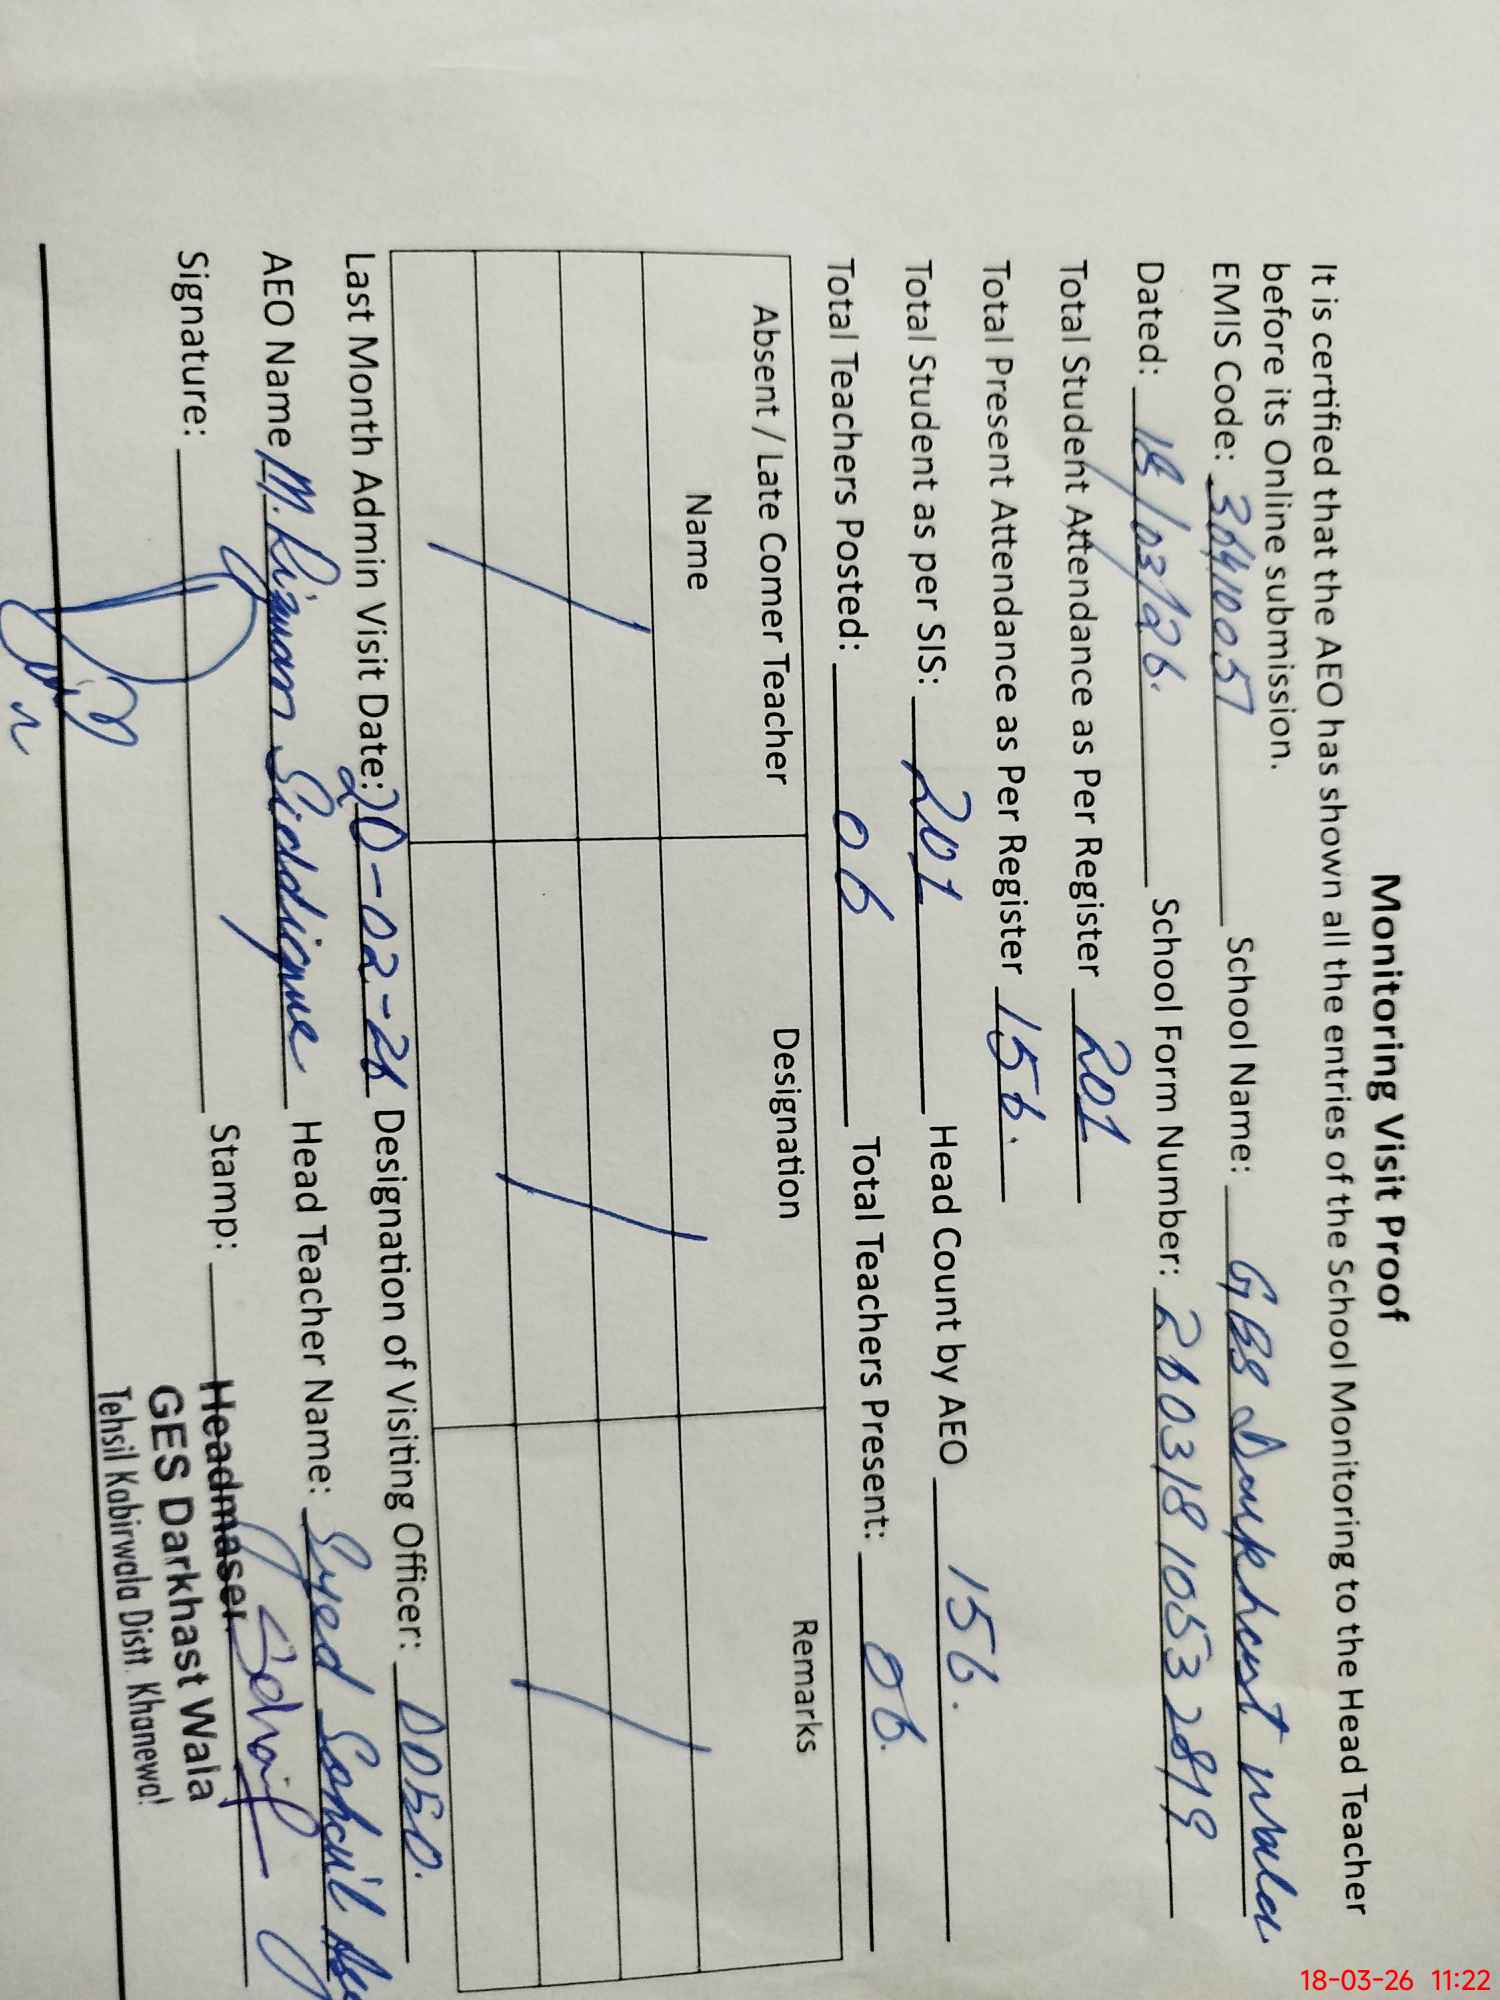 Monitoring Visit Proof
It is certified that the AEO has shown all the entries of the School Monitoring to the Head Teacher
before its Online submission.
EMIS Code: 36410057 School Name: GES Darkhast wala
Dated: 18/03/26. School Form Number: 2603181053 2819
Total Student Attendance as Per Register 201
Total Present Attendance as Per Register 156.
Total Student as per SIS: 201 Head Count by AEO 156.
Total Teachers Posted: 06 Total Teachers Present: 06.
Absent / Late Comer Teacher Name Designation Remarks
Last Month Admin Visit Date: 20-02-26 Designation of Visiting Officer: DDEO.
AEO Name M. Rizwan Siddique Head Teacher Name: Syed Sohail
Signature: Stamp: Headmaser
GES Darkhast Wala
Tehsil Kabirwala Distt. Khanewal
18-03-26 11:22